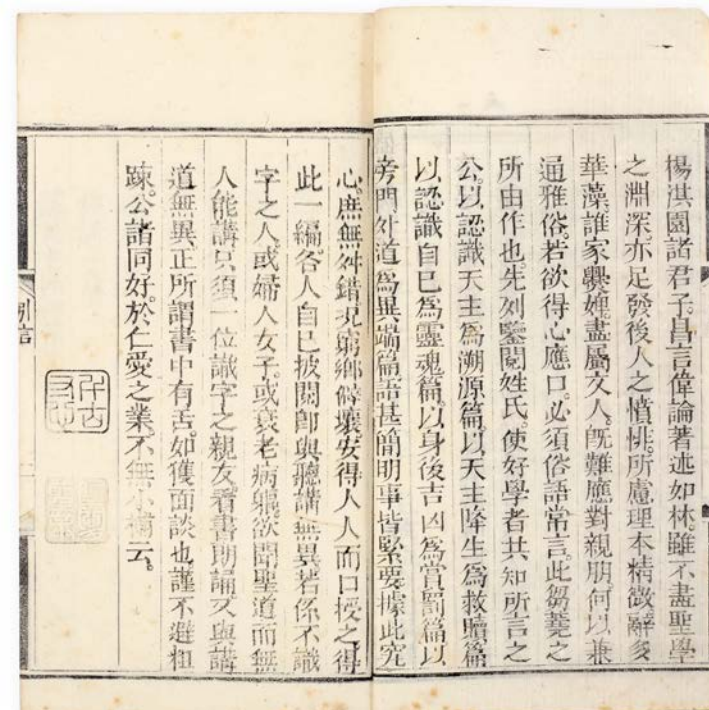 楊淇園諸君子。昌言偉論著述如林。雖不盡聖學
之淵深。亦足發後人之憤悱。所慮理本精微。辭多
華藻。誰家爨婢。盡屬文人。旣難應對親朋。何以兼
通雅俗。若欲得心應口。必須俗語常言。此芻蕘之
所由作也。先列鑒閱姓氏。使好學者共知所言之
公。以認識天主爲溯源篇。以天主降生爲救贖篇
以認識自已爲靈魂篇。以身後吉凶爲賞罰篇。以
旁門外道爲異端篇。語甚簡明。事皆緊要。據此究
心。庶無舛錯。況窮鄉僻壤。安得人人而口授之。得
此一編。各人自已披閱。卽與聽講無異。若係不識
字之人。或婦人女子。或衰老病軀。欲聞聖道而無
人能講。只須一位識字之親友。看書朗誦。又與講
道無異。正所謂書中有舌。如獲面談也。謹不避粗
疎。公諸同好。於仁愛之業。不無小補云。
引言